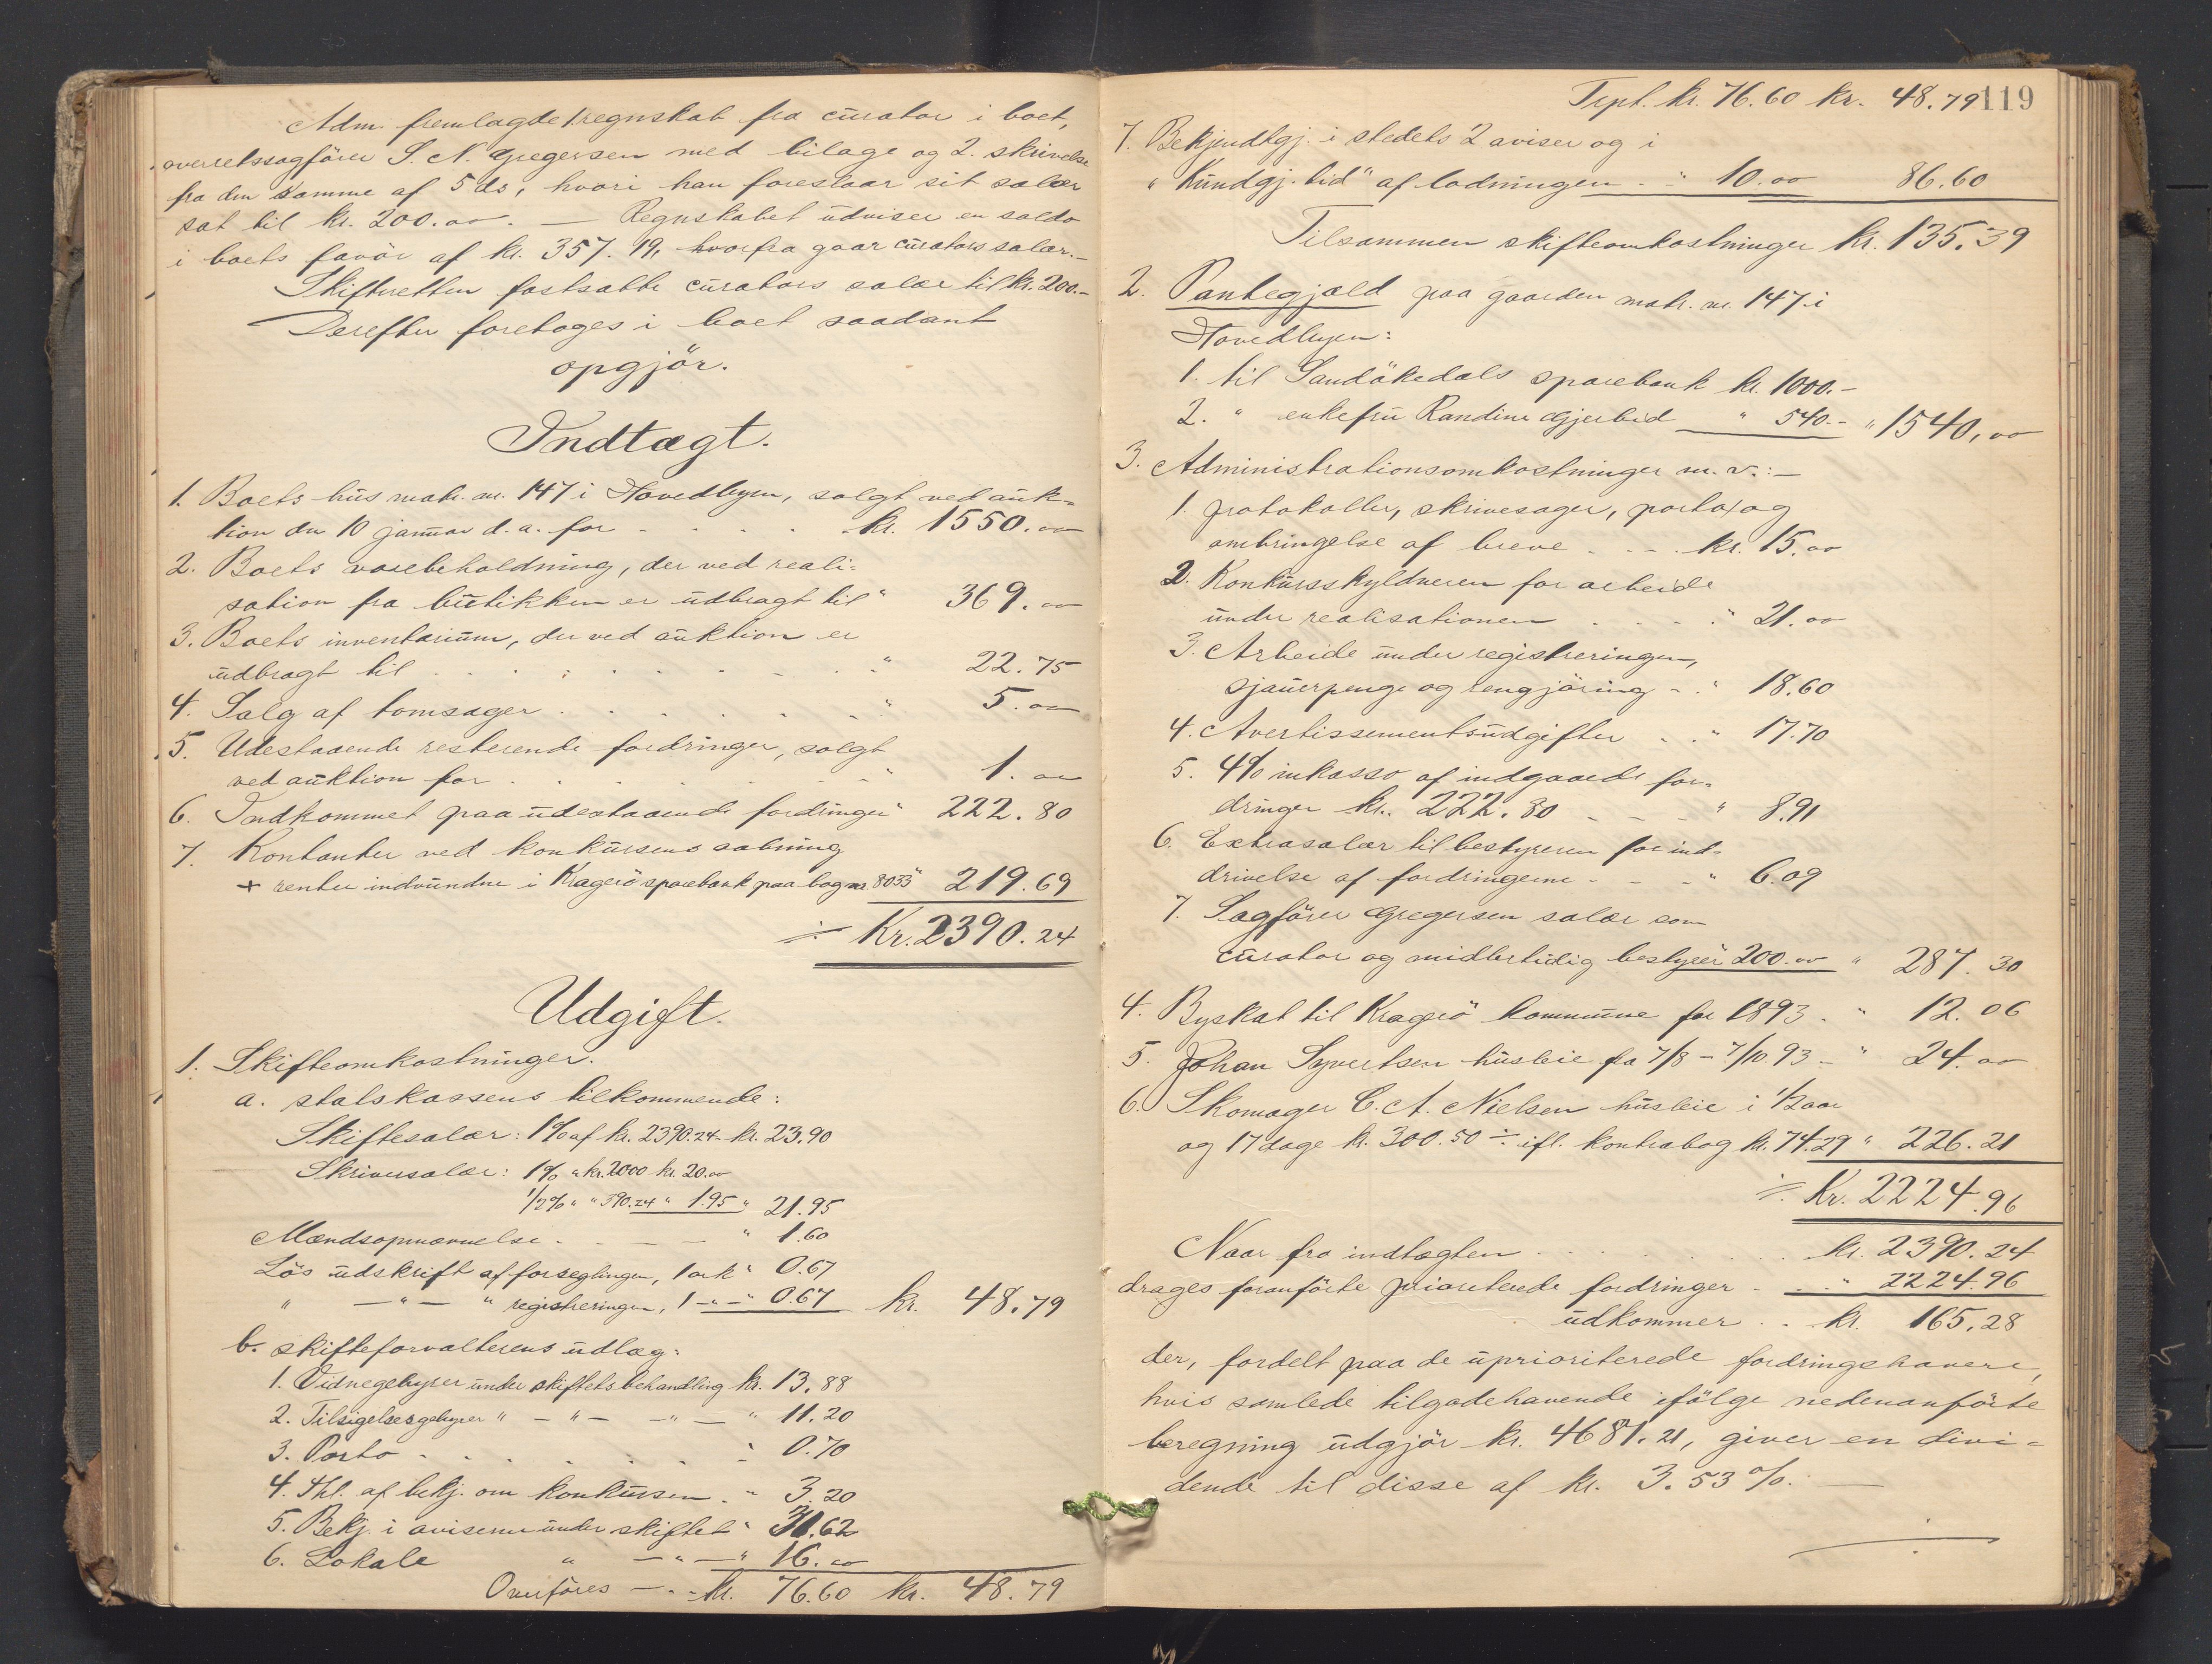 Adm. fremlagde regnskab fra curator i boet,
overretssagfører S. N. Gregersen med bilage og 2. skrivelse
fra den samme af 5 ds, hvori han foreslaar sit salær
sat til kr. 200.00. — Regnskabet udviser en saldo
i boets favör af kr. 357.19, hvorfra gaar curators salær. –
Skifteretten fastsatte curators salær til kr. 200.–
Derefter foretoges i boet saadant
opgjör.
Indtægt.
1. Boets hus matr. nr. 147 i Hovedbyen, solgt ved auk-
tion den 10 januar d. a. for . . . . kr. 1550.00
2. Boets varebeholdning, der ved reali-
sation fra butikken er udbragt til " 369.00
3. Boets inventarium, der ved auktion er
udbragt til . . . . . . . . " 22.75
4. Salg af tomsager . . . . . . " 5.00
5. Udestaaende resterende fordringer, solgt
ved auktion for . . . . . . . " 1.00
6. Indkommet paa udestaaende fordringer " 222.80
7. Kontanter ved konkursens aabning
+ renter indvundne i Kragerö sparebank paa bog nr. 8033 " 219.69
÷ Kr. 2390.24
Udgift.
1. Skifteomkostninger.
a. statskassens tilkommende:
Skiftesalær: 1% af kr. 2390.24 – kr. 23.90
Skriversalær: 1% " kr. 2000 kr. 20.00
1/2% " " 390.24 " 1.95 " 21.95
Mændsopnævnelse . – – – " 1.60
Lös udskrift af forseglingen, 1 ark " 0.67
" — " — " registreringen, 1 – " – " 0.67 kr. 48.79
b. skifteforvalterens udlæg:
1. Vidnegebyrer under skiftets behandling kr. 13.88
2. Tilsigelsesgebyrer " – " – – " – " 11.20
3. Porto . . . . . . . " 0.70
4. Thl. af bekj. om konkursen . " 3.20
5. Bekj. i aviserne under skiftet " 31.62
6. Lokale " – " – " 16.00
Overföres – . - kr. 76.60 kr. 48.79
119
Trpt. kr. 76.60 kr. 48.79
7. Bekjendtgj. i stedets 2 aviser og i
"Kundgj. tid" af lodningen . – " 10.00 86.60
Tilsammen skifteomkostninger kr. 135.39
2. Pantegjæld paa gaarden matr. nr. 147 i
Hovedbyen:
1. til Sandökedals sparebank kr. 1000.–
2. " enkefru Randine Gjerbid " 540.– " 1540.00
3. Administrationsomkostninger m. v.: –
1. protokoller, skrivesager, porto, og
ombringelse af breve . – – . kr. 15.00
2. Konkursskyldneren for arbeide
under realisationen . . . . " 21.00
3. Arbeide under registreringen,
sjauerpenge og rengjöring – . " 18.60
4. Avertissementsudgifter . . " 17.70
5. 4% inkasso af indgaaede for-
dringer kr. 222.80 – – – " 8.91
6. Extrasalær til bestyreren for ind-
drivelse af fordringerne – – – " 6.09
7. Sagförer Gregersen salær som
curator og midlertidig bestyrer 200.00 " 287.30
4. Byskat til Kragerö kommune for 1893 . " 12.06
5. Johan Syvertsen husleie fra 7/8 – 7/10 93 – " 24.00
6. Skomager C. A. Nielsen husleie i 1/2 aar
og 17 dage kr. 300.50 ÷ ifl. kontrabog kr. 74.29 " 226.21
÷ Kr. 2224.96
Naar fra indtægten . . . . . . kr. 2390.24
drages foranförte prioriterede fordringer . . . " 2224.96
udkommer . . kr. 165.28
der, fordelt paa de uprioriterede fordringshavere,
hvis samlede tilgodehavende ifölge nedenanförte
beregning udgjör kr. 4681.21, giver en divi-
dende til disse af kr. 3.53%. —